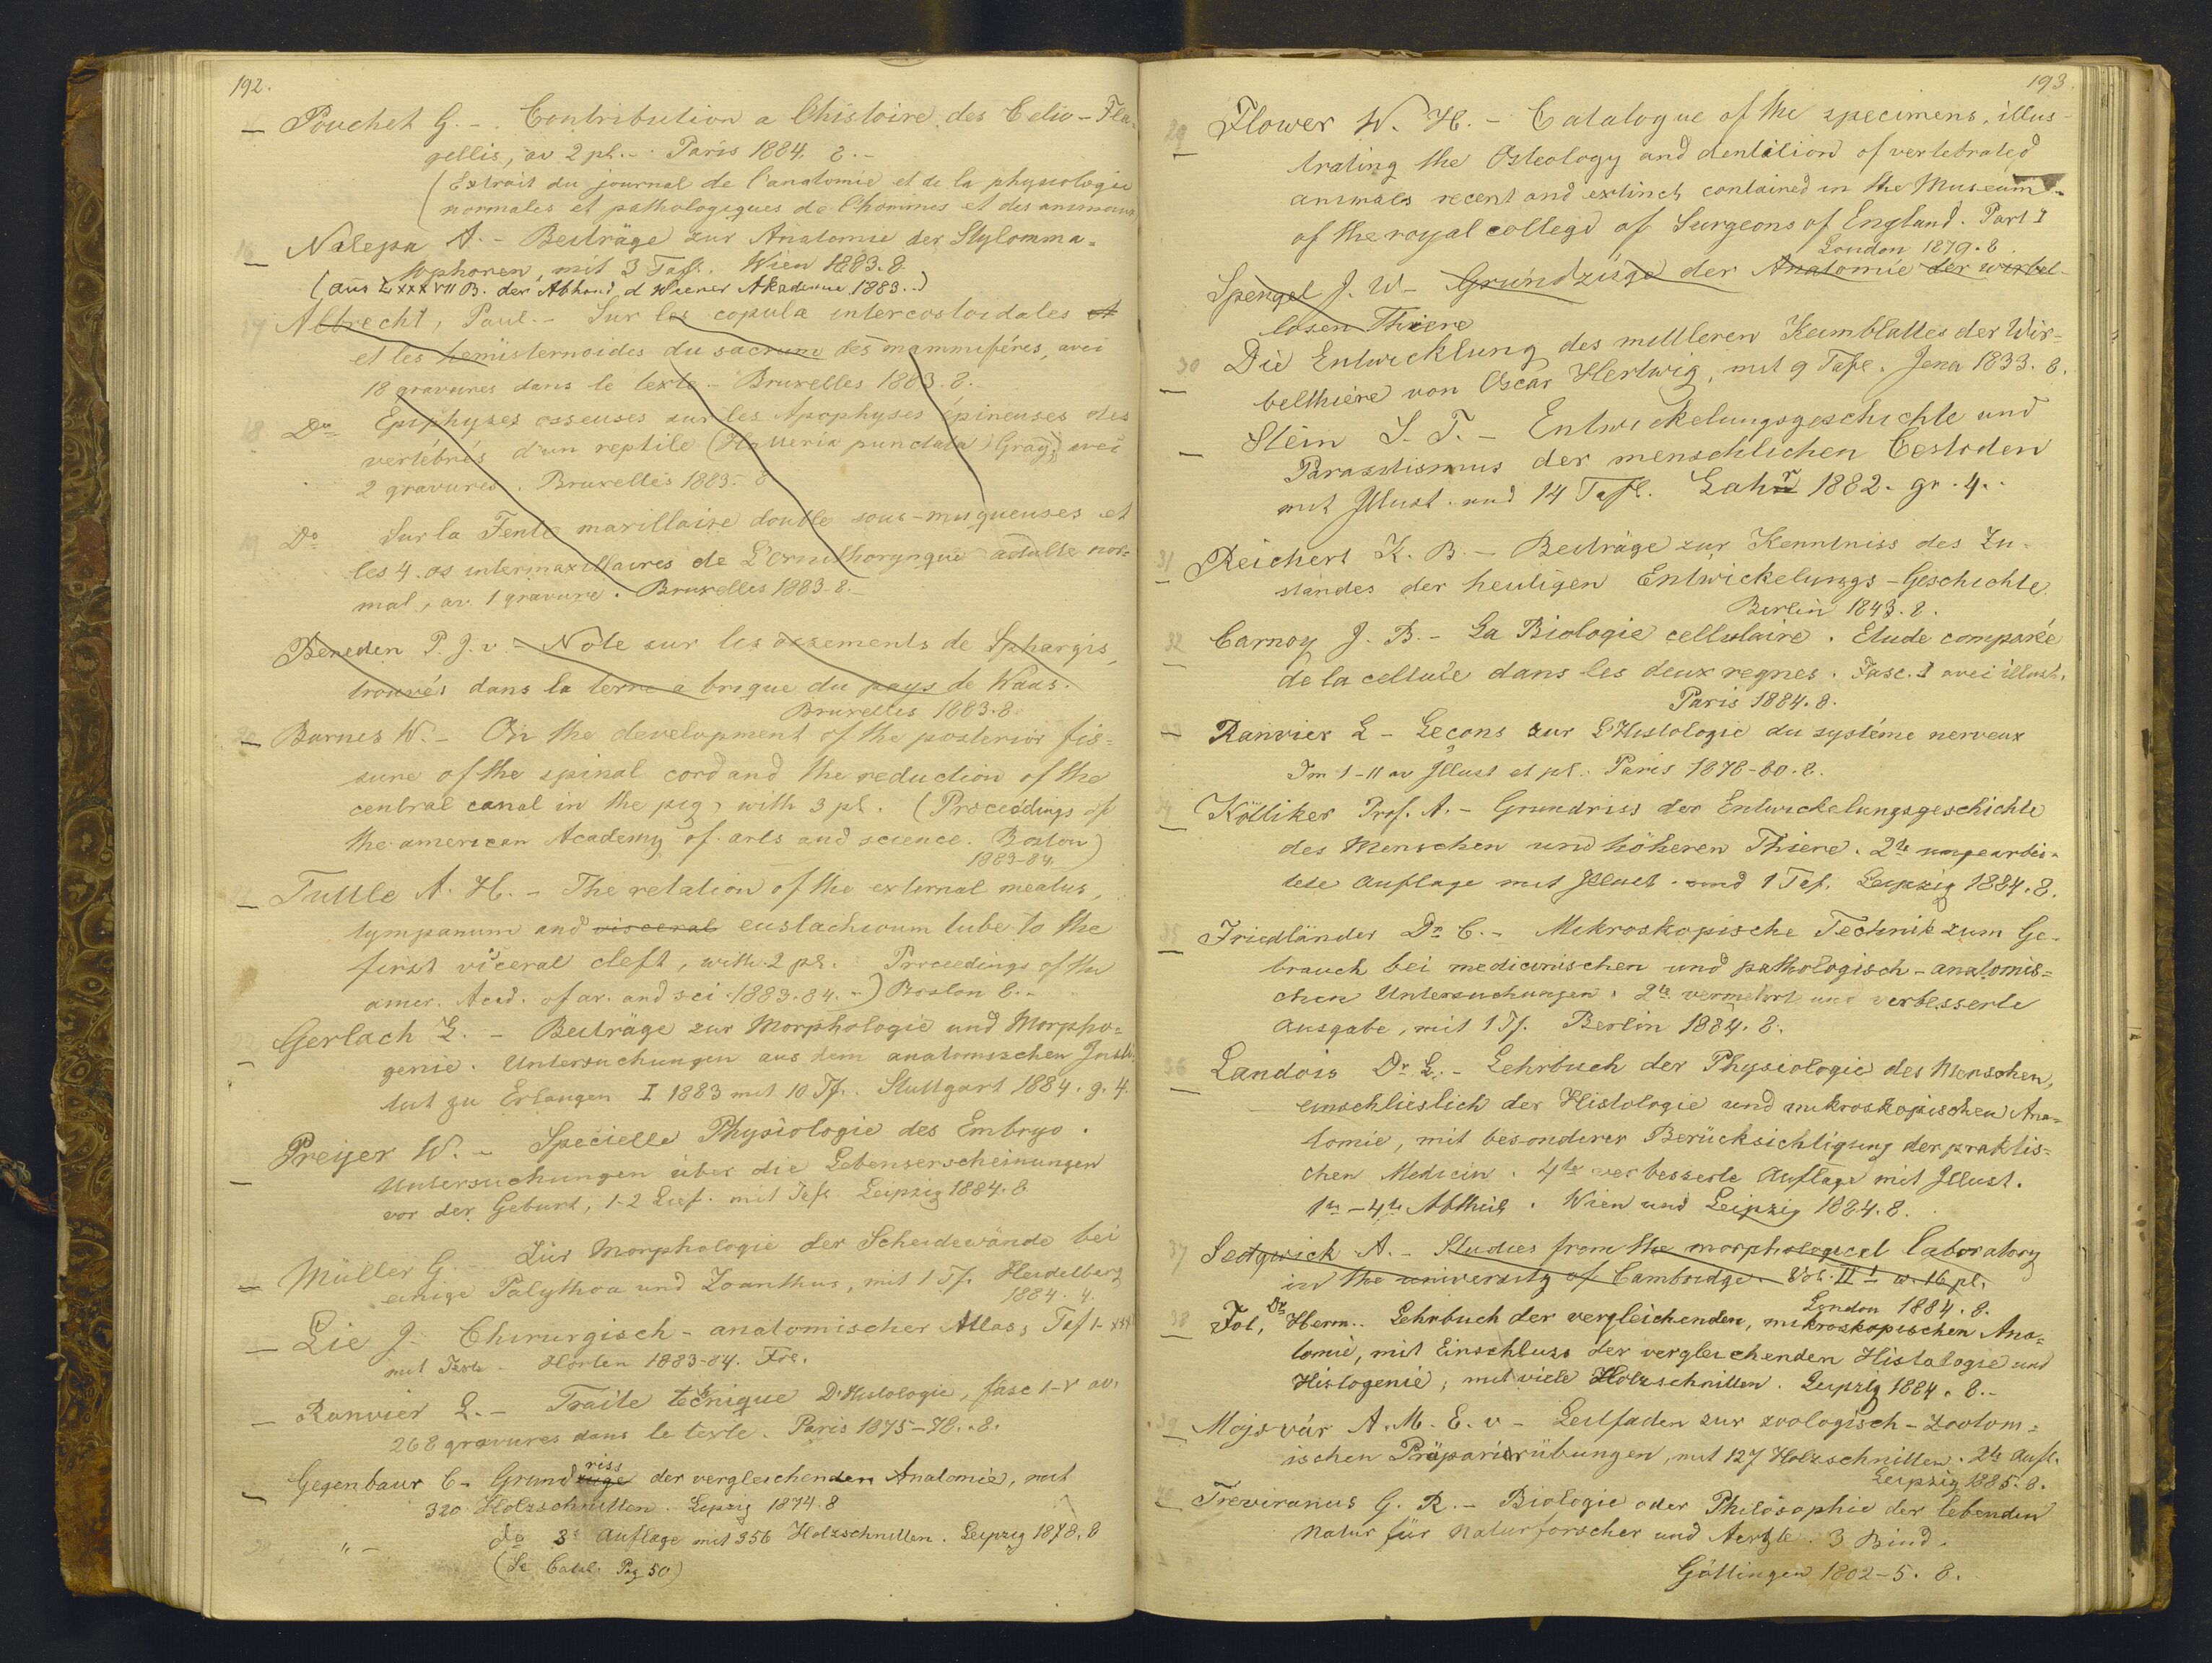 192.
Pouchet G. - Contribution a l'histoire des Celio-Fla-
gellis, av 2 pl. - Paris 1884. 8. -
(Extrait du journal de l'anatomie et de la physiologie
normales et pathologiques de l'hommes et des animaux)
16 Nalepa A. - Beiträge zur Anatomie der Stylomma-
tophoren, mit 3 Tafl. Wien 1883. 8.
(Aus LXXXVII B. der Abhand. d Wiener Akademie 1883..)
17 Albrecht, Paul. - Sur les copula intercostoidales et
et les hemisternoides du sacrum des mammiféres, avec
18 gravures dans le texte. - Bruxelles 1883. 8.
18 Do Epiphyses osseuses sur les Apophyses épineuses des
vertébrés d'un reptile (Hatteria punctata) Gray, avec
2 gravures. Bruxelles 1883. - 8
19 Do Sur la Fente maxillaire double sous-muqueuses et
les 4 os intermaxillaires de L'ornithorynque adulte nor-
mal, av. 1 gravure. Bruxelles 1883. 8. -
Beneden P. J. v - Note sur les ossements de Sphargis,
trouvés dans la terre a brique du pays de Waas.
Bruxelles 1883. 8.
20 Barnes W. - On the development of the posterior fis-
sure of the spinal cord and the reduction of the
central canal in the pig, with 3 pl. (Proceedings of
the american Academy of arts and science. Boston)
1883-84.
21 Tuttle A. H. - The relation of the external meatus,
tympanum and visceral eustachioum tube to the
first visceral cleft, with 2 pl. Proceedings of the
amer. Acad. of ar. and sci. 1883.84. -) Boston 8. -
22 Gerlach L. - Beiträge zur Morphologie und Morpho-
genie. Untersuchungen aus dem anatomischen Insti-
tut zu Erlangen I 1883 mit 10 Tf. Stuttgart 1884. g. 4.
Preyer W. - Specielle Physiologie des Embryo.
Untersuchungen über die Lebenserscheinungen
vor der Geburt, 1-2 Lief. mit Tafl. Leipzig 1884. 8
Müller G. - Zür Morphologie der Scheidewände bei
einige Palythoa und Zoanthus, mit 1 Tf. Heidelberg
1884. 4.
Lie J. Chirurgisch-anatomischer Atlas, Taf 1-XXX
mit Text - Horten 1883-84. Fol.
Ranvier L. - Traite technique D'Histologie, fasc 1-V av.
268 gravures dans le texte. Paris 1875-78. 8.
Gegenbaur C - Grundzüge riss der vergleichenden Anatomie, mit
320 Holzschnitten. Leipzig 1874. 8
" - do 3e Auflage mit 356 Holzschnitten. Leipzig 1878. 8
(Se Catal. Pag 50)
193.
29 Flower W. H. - Catalogue of the specimens, illus-
trating the Osteology and dentition of vertebrated
animals recent and extinct, contained in the Museum
of the royal college of Surgeons of England. Part I
London 1879. 8.
Spengel J. W - Grundzüge der Anatomie der wirbel-
losen Thiere
30 Die Entwicklung des mittleren Keimblattes der Wir-
belthiere von Oscar Hertwig, mit 9 Tafl. Jena 1833. 8.
Stein S. T. - Entwickelungsgeschichte und
Parasitismus der menschlichen Cestoden
mit Illust. und 14 Tafl. Lahr 1882. gr. 4.
31 Reichert K. B. - Beiträge zur Kenntniss des Zu-
standes der heutigen Entwickelungs-Geschichte
Berlin 1843. 8.
32 Carnoy J. B. - La Biologie cellulaire. Etude comparée
de la cellule dans les deux regnes. Fasc. I avec illust.
Paris 1884. 8.
33 Ranvier L - Leçons sur L'Histologie du systéme nerveux
Tm 1-11 av Illust et pl. Paris 1878-80. 8.
34 Kölliker Prof. A. - Grundriss der Entwickelungsgeschichte
des Menschen und höheren Thiere. 2te umgearbei-
tete Auflage mit Illust. und 1 Taf. Leipzig 1884. 8.
35 Friedländer Dr C. - Mikroskopische Technik zum Ge-
brauch bei medicinischen und pathologisch-anatomis-
chen Untersuchungen. 2te vermehrte und verbesserte
Ausgabe, mit 1 Tf. Berlin 1884. 8.
36 Landois Dr L. - Lehrbuch der Physiologie des Menschen,
einschlieslich der Histologie und mikroskopischen Ana-
tomie, mit besonderer Berücksichtigung der praktis-
chen Medicin. 4te verbesserte Auflage mit Illust.
1te-4te Abtheil. Wien und Leipzig 1884. 8.
37 Sedgwick A. - Studies from the morphological laboratory
in the university of Cambridge. Vol. II 1 w. 16 pl.
London 1884. 8.
38 Fol, Dr Herm. Lehrbuch der vergleichenden, mikroskopischen Ana-
tomie, mit Einschluss der vergleichenden Histologie und
Histogenie, mit viele Holzschnitten. Leipzig 1884. 8. -
39 Mojsvár A. M. E. v - Leitfaden zur zoologisch-zootom-
ischen Präparierübungen, mit 127 Holzschnitten. 2te Aufl.
Leipzig 1885. 8.
40 Treviranus G. R. - Biologie oder Philosophie der lebenden
Natur für Naturforscher und Aertzte. 3 Bind.
Göttingen 1802-5. 8.